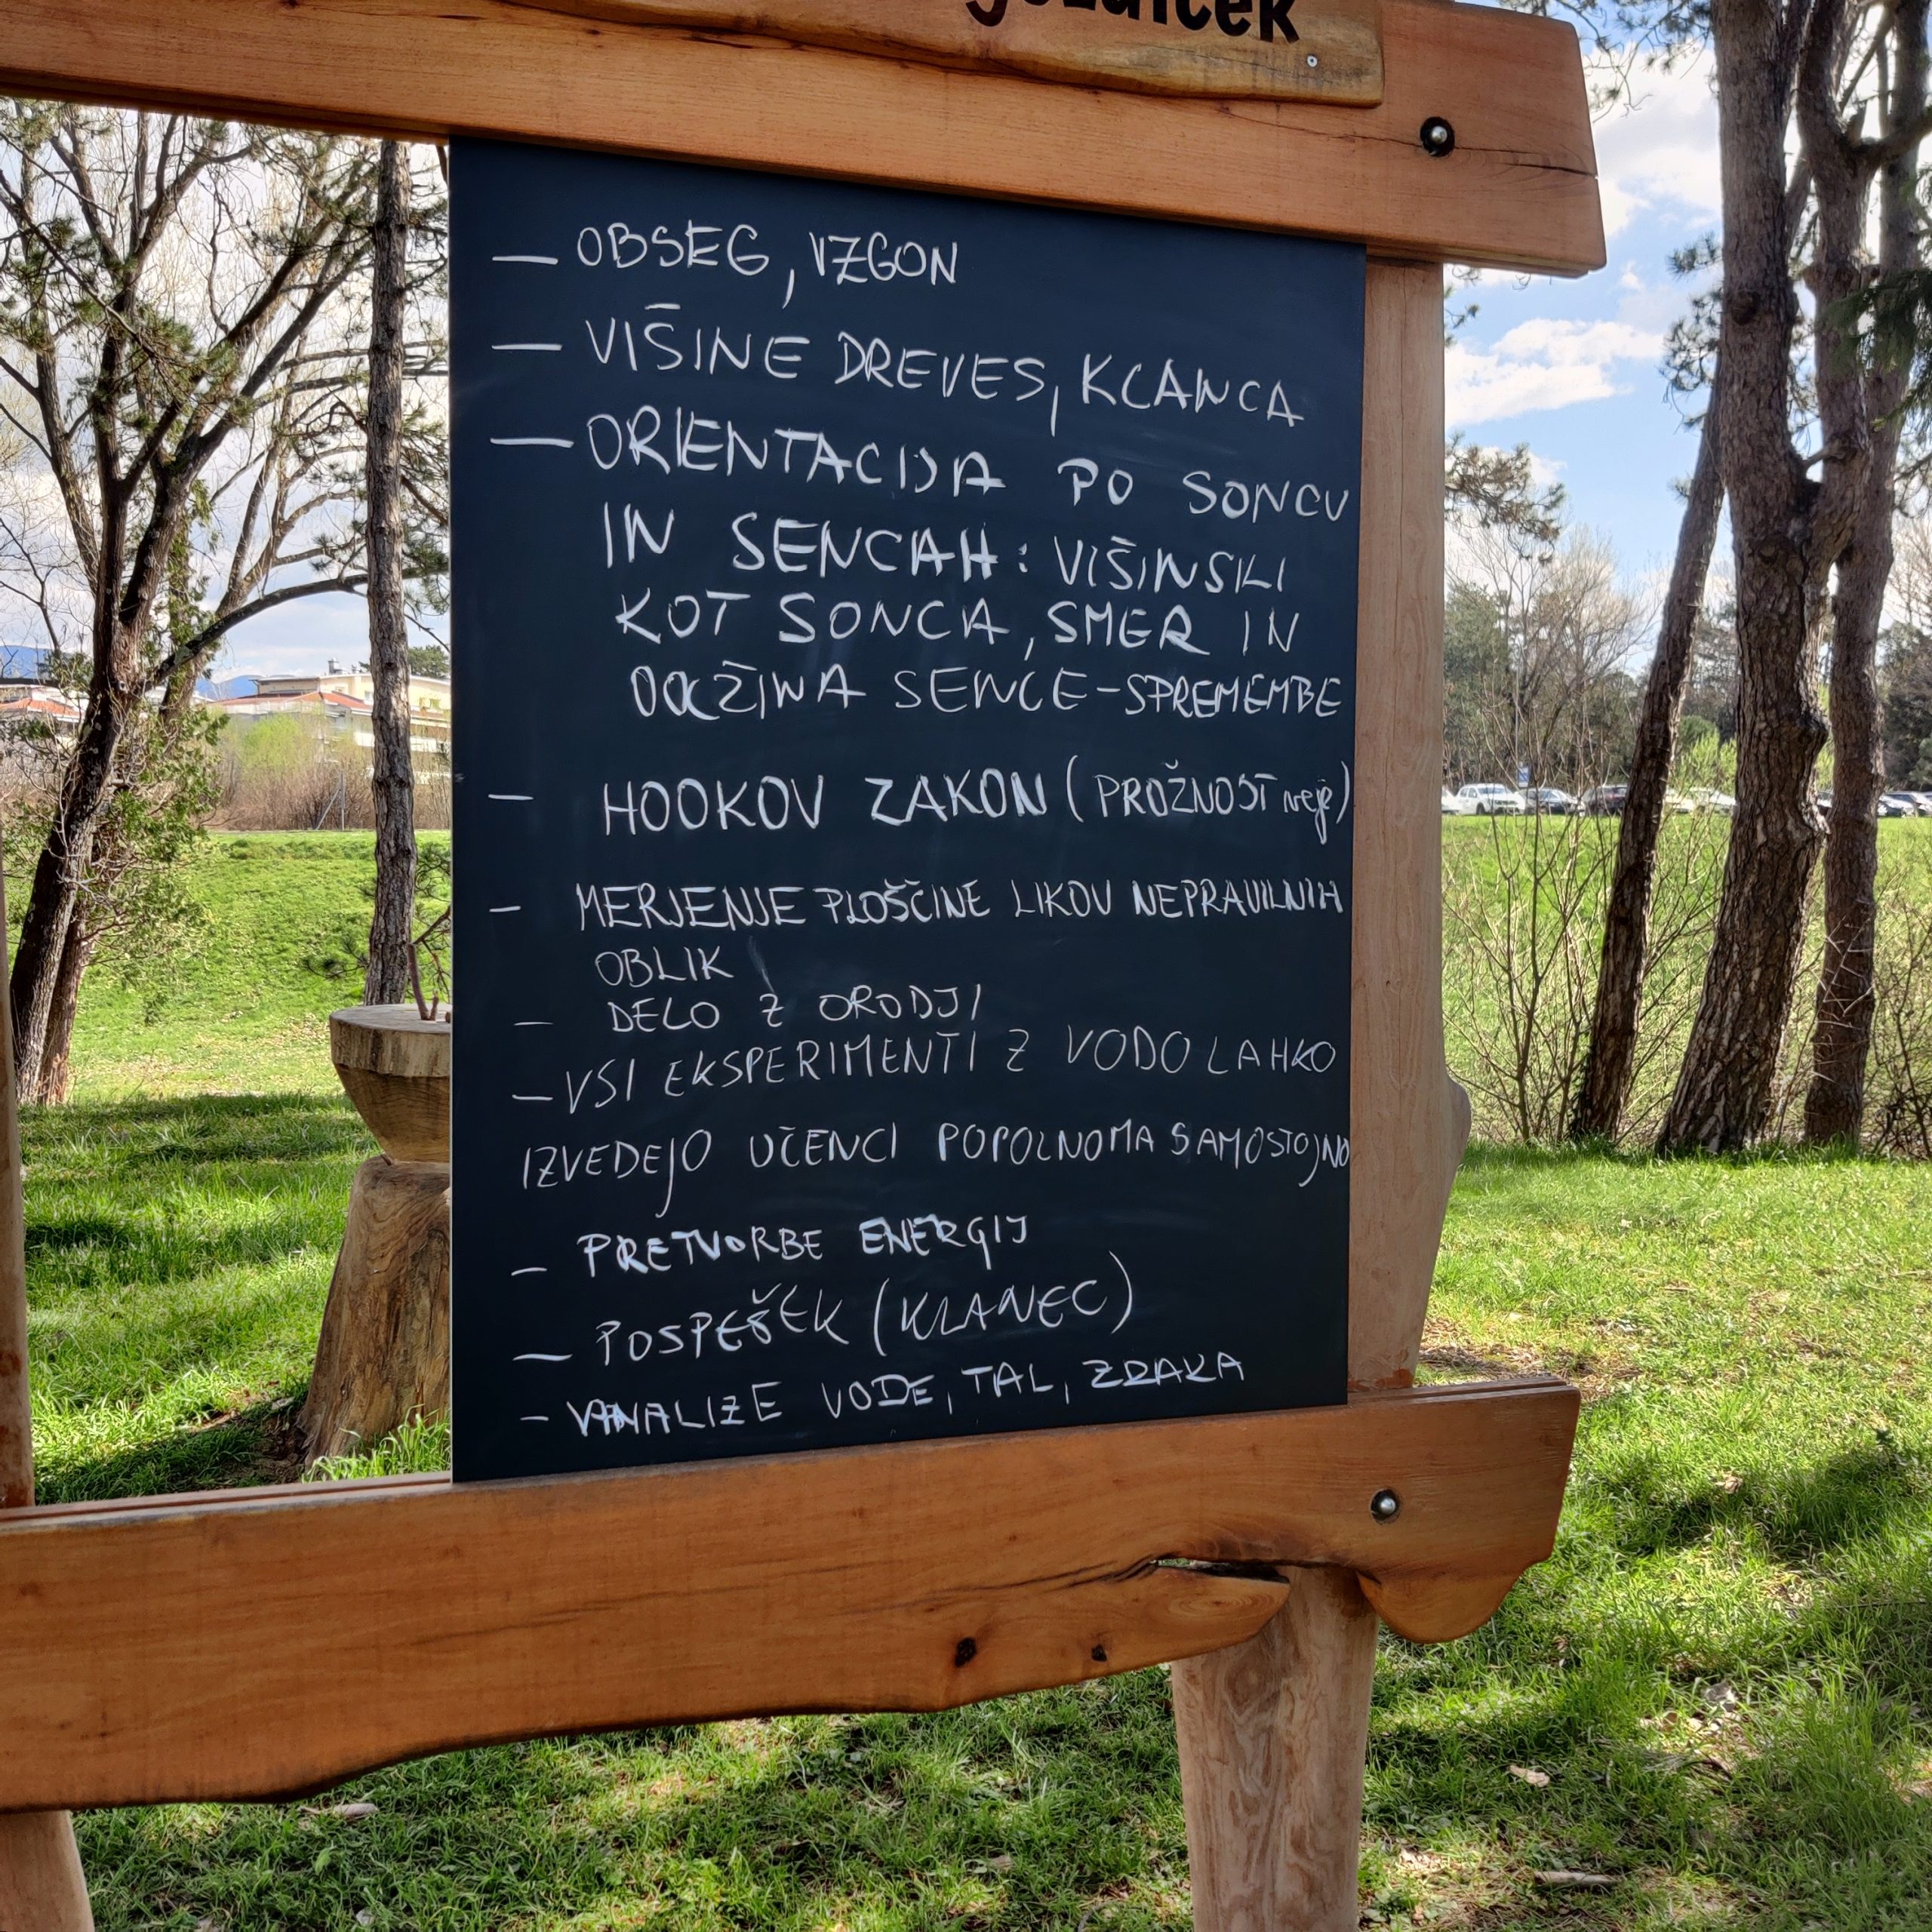 — OBSEG, VZGON
— VIŠINE DREVES, KLANCA
— ORIENTACIJA PO SONCU
IN SENCAH: VIŠINSKI
KOT SONCA, SMER IN
DOLŽINA SENCE-SPREMEMBE
- HOOKOV ZAKON (PROŽNOST veje)
- MERJENJE PLOŠČINE LIKOV NEPRAVILNIH
OBLIK
- DELO Z ORODJI
- VSI EKSPERIMENTI Z VODO LAHKO
IZVEDEJO UČENCI POPOLNOMA SAMOSTOJNO
- PRETVORBE ENERGIJ
- POSPEŠEK (KLANEC)
- ANALIZE VODE, TAL, ZRAKA